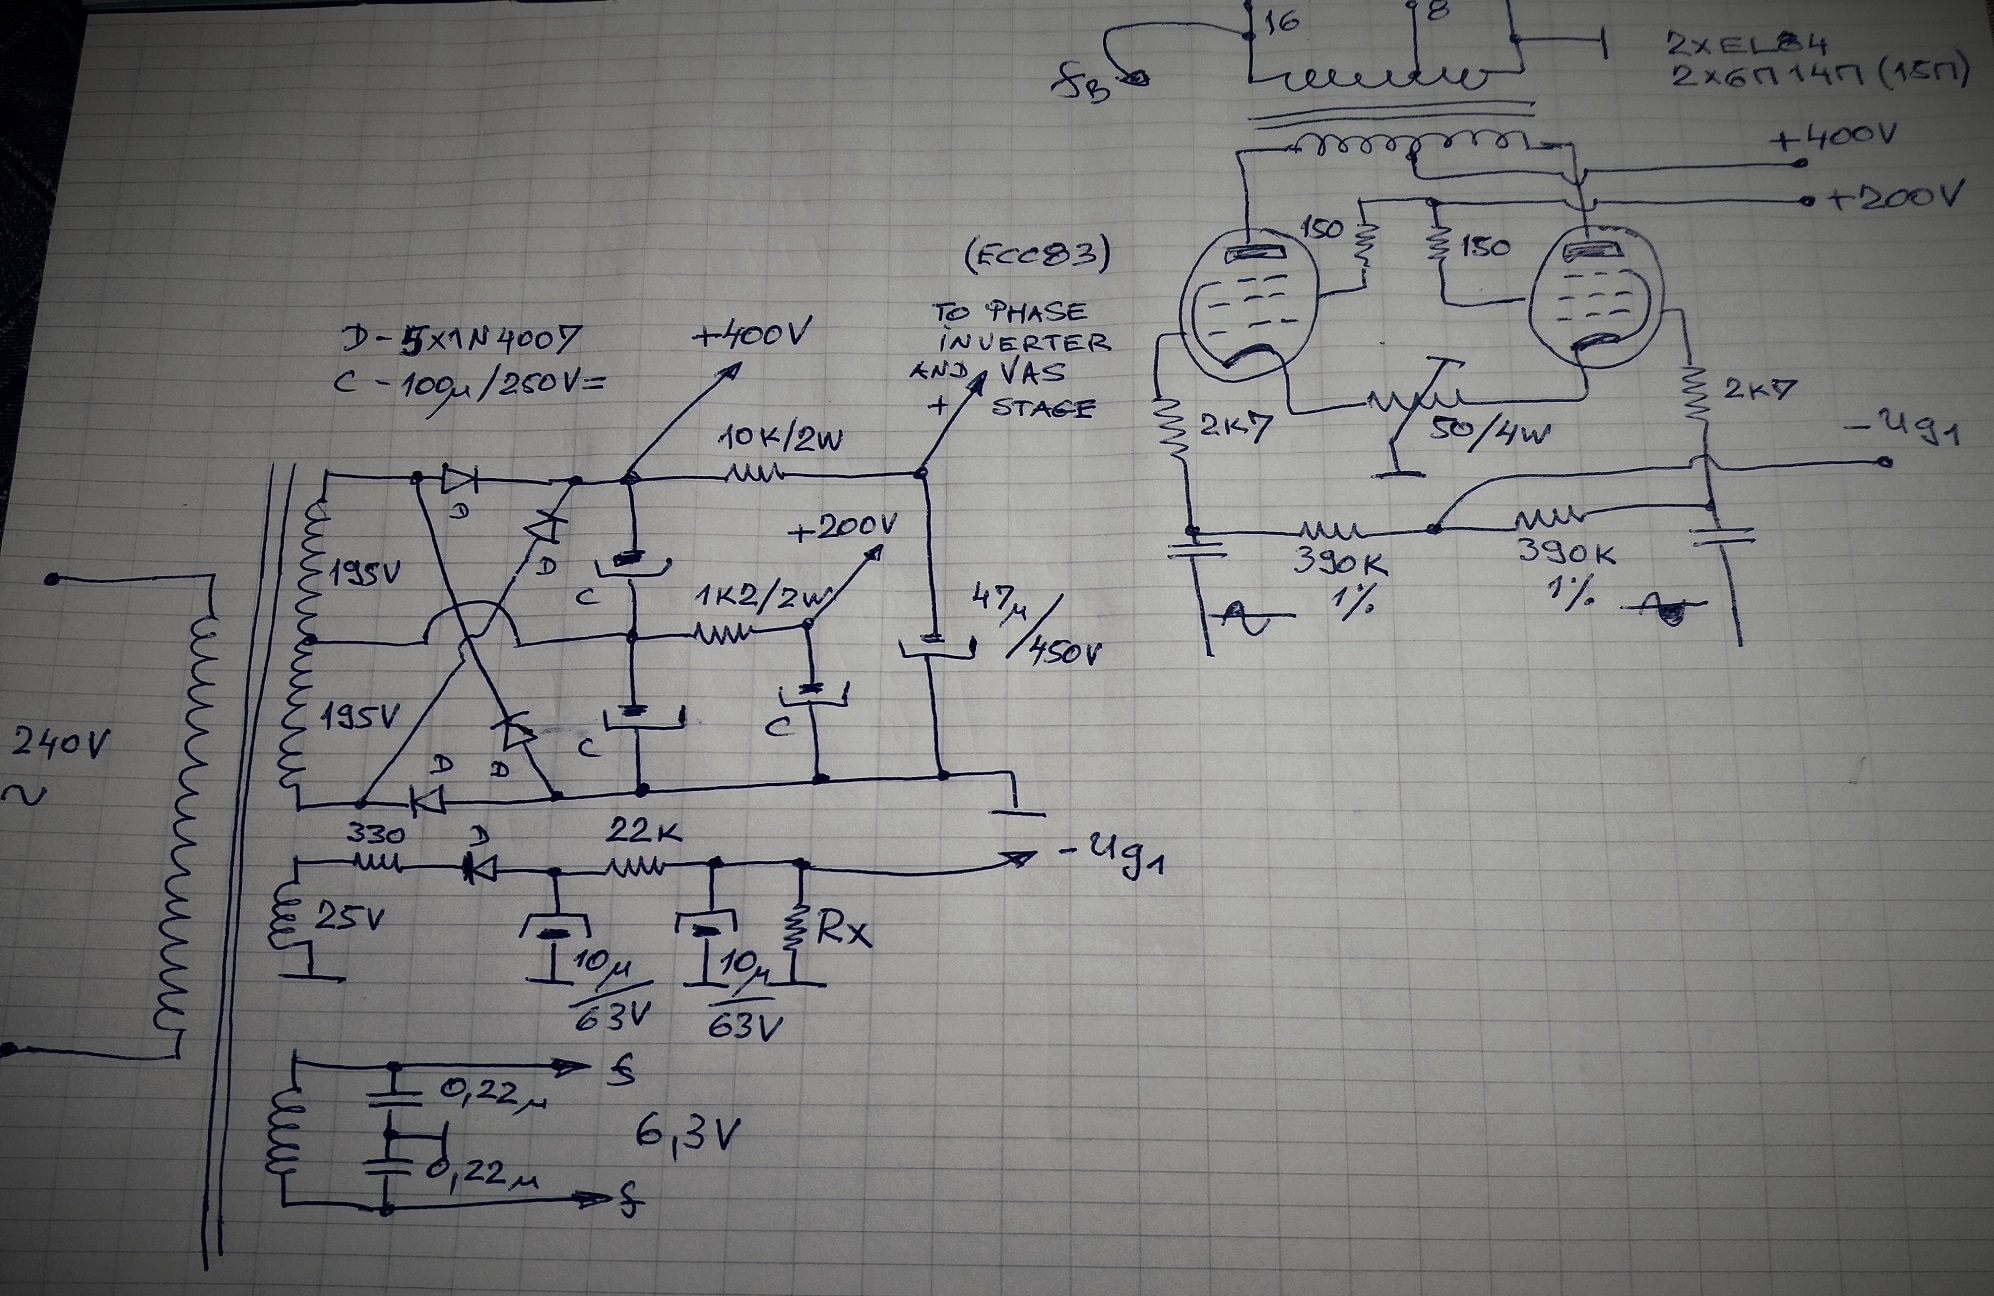 16
8
fB
2xEL84
2x6П14П (15П)
+400V
+200V
150
150
(ECC83)
TO PHASE
INVERTER
AND VAS
+ STAGE
D - 5x1N4007
C - 100µ/250V=
+400V
10K/2W
2K7
50/4W
2K7
-Ug1
D
D
195V
C
+200V
1K2/2W
47µ/450V
390K
1%
390K
1%
240V
~
195V
C
C
D
D
330
D
22K
-Ug1
25V
10µ/63V
10µ/63V
Rx
0,22µ
f
6,3V
0,22µ
f